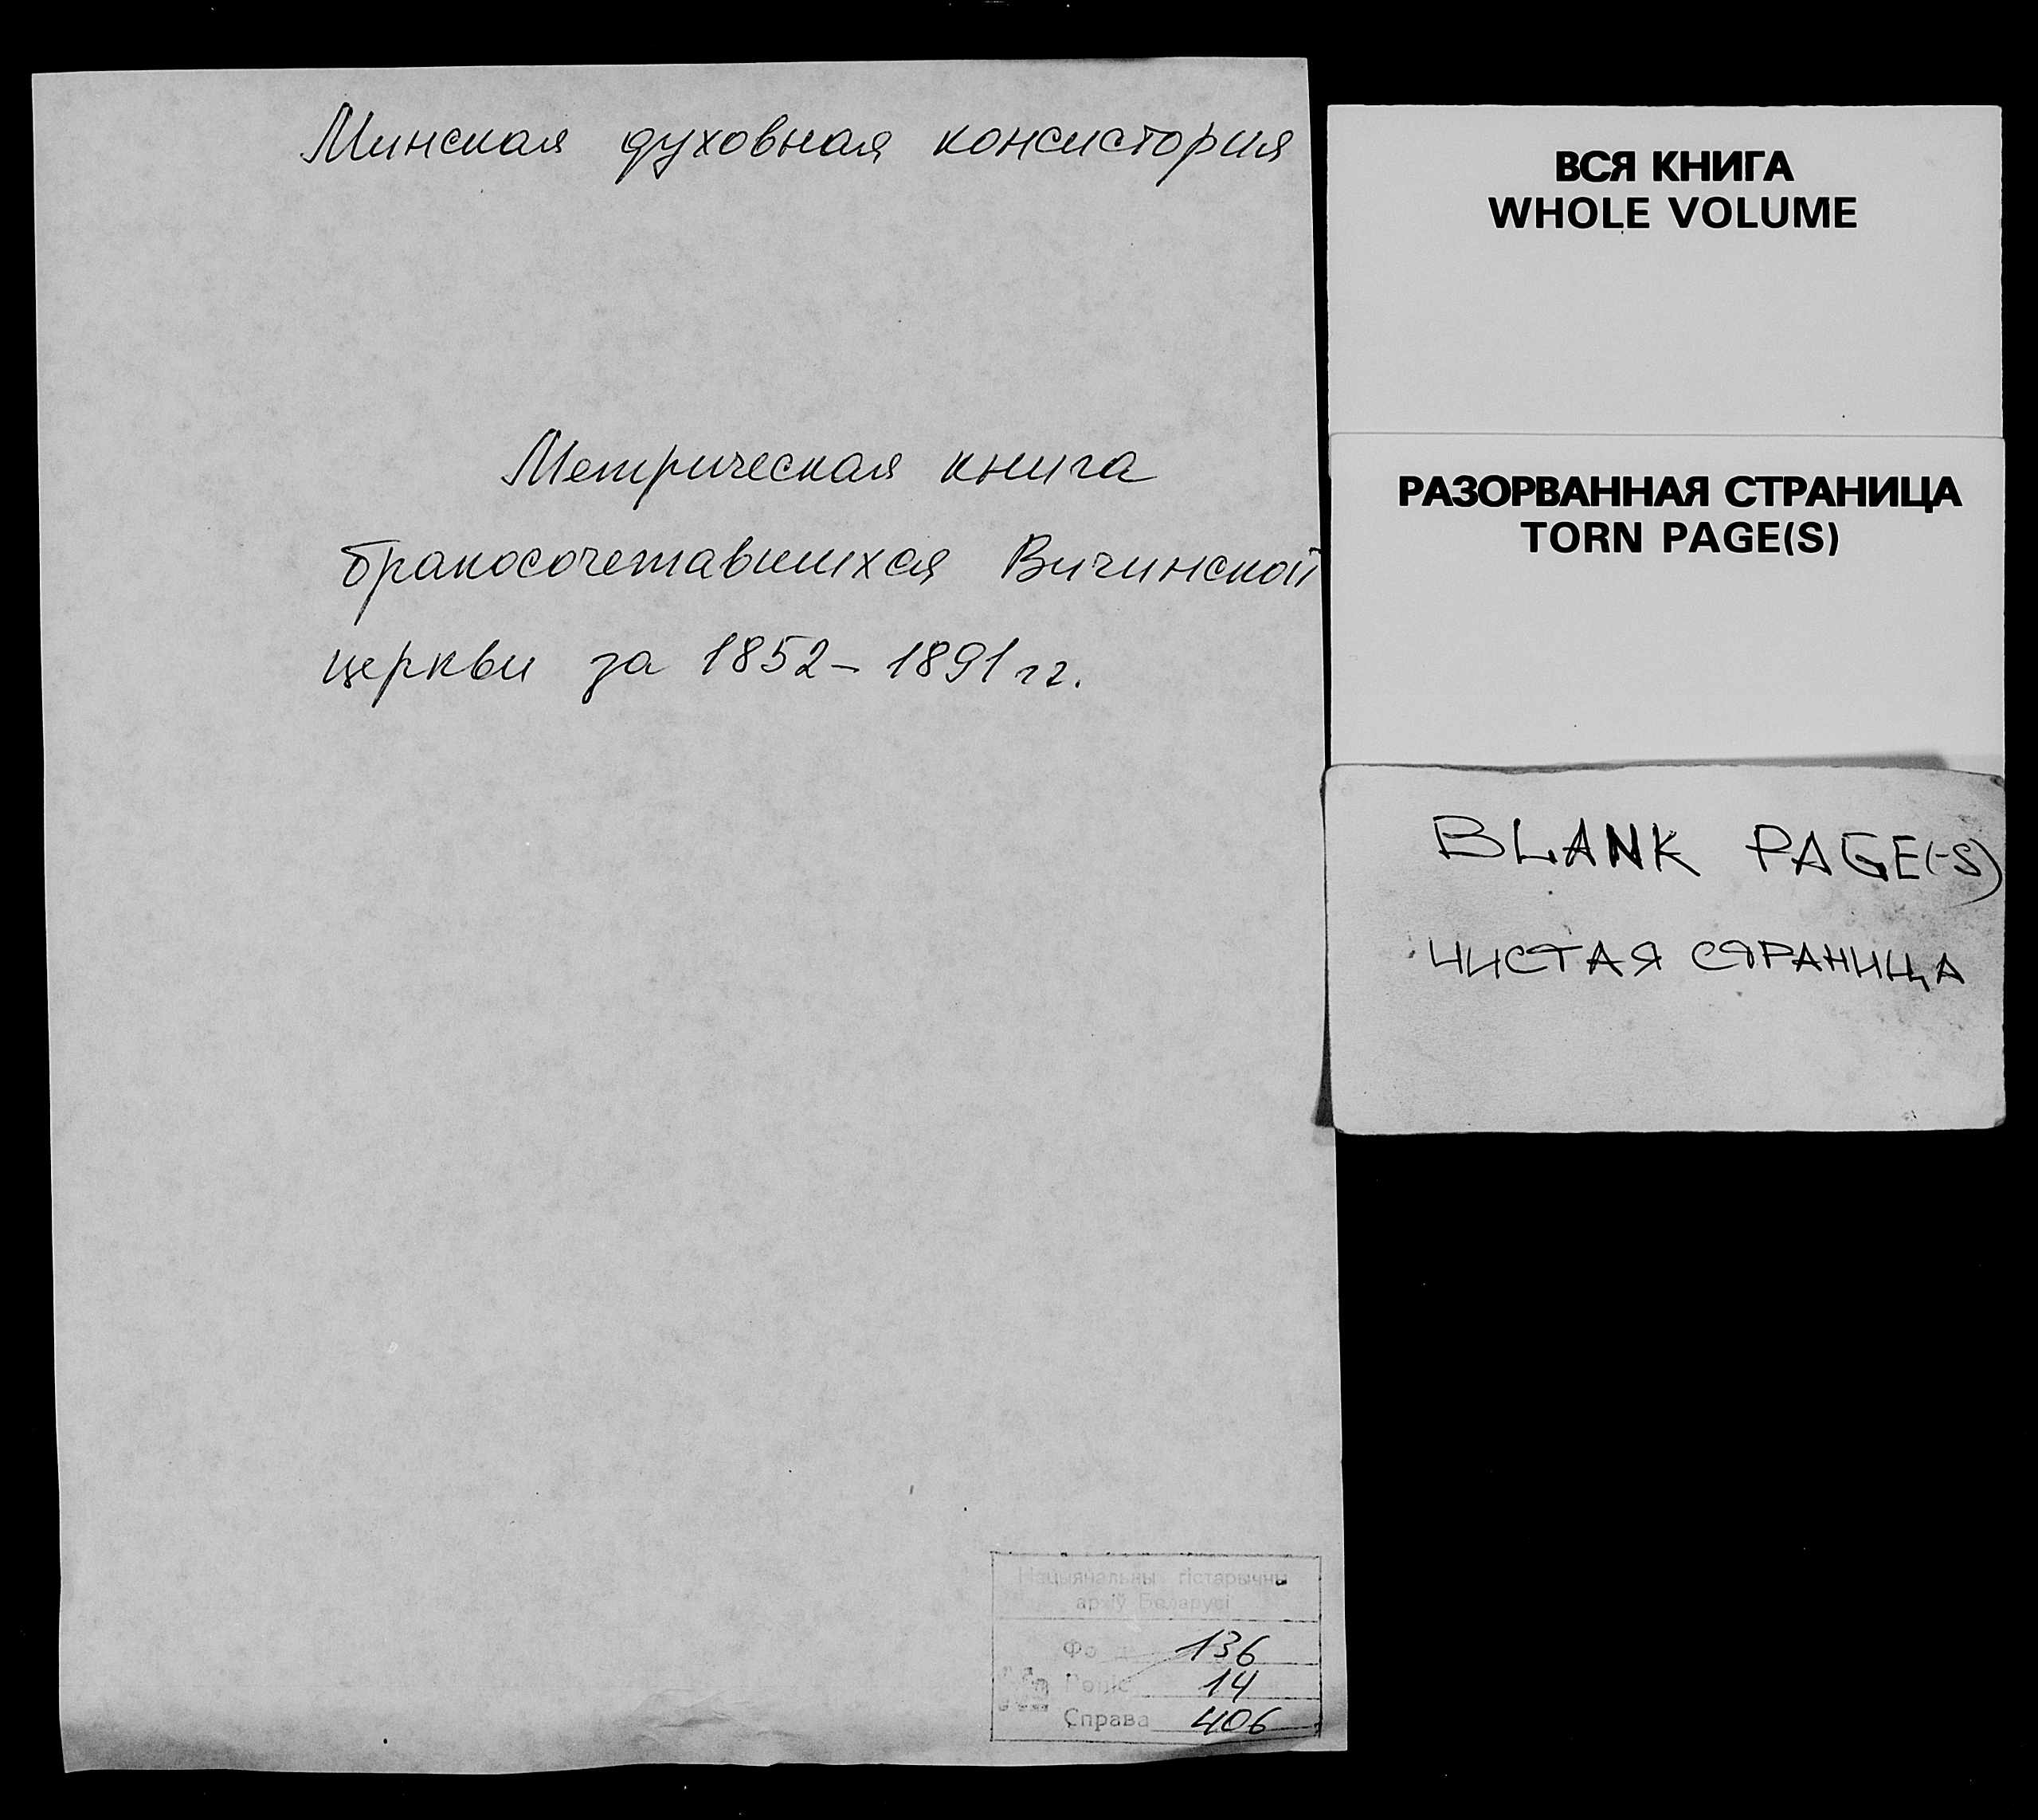 Минская духовная консистория
Метрическая книга
бракосочетавшихся Вичинской
церкви за 1852-1891 гг.
Нацыянальны гістарычны
архіў Беларусі
Фонд 136
Вопіс 14
Справа 406
ВСЯ КНИГА
WHOLE VOLUME
РАЗОРВАННАЯ СТРАНИЦА
TORN PAGE(S)
BLANK PAGE(-S)
ЧИСТАЯ СТРАНИЦА